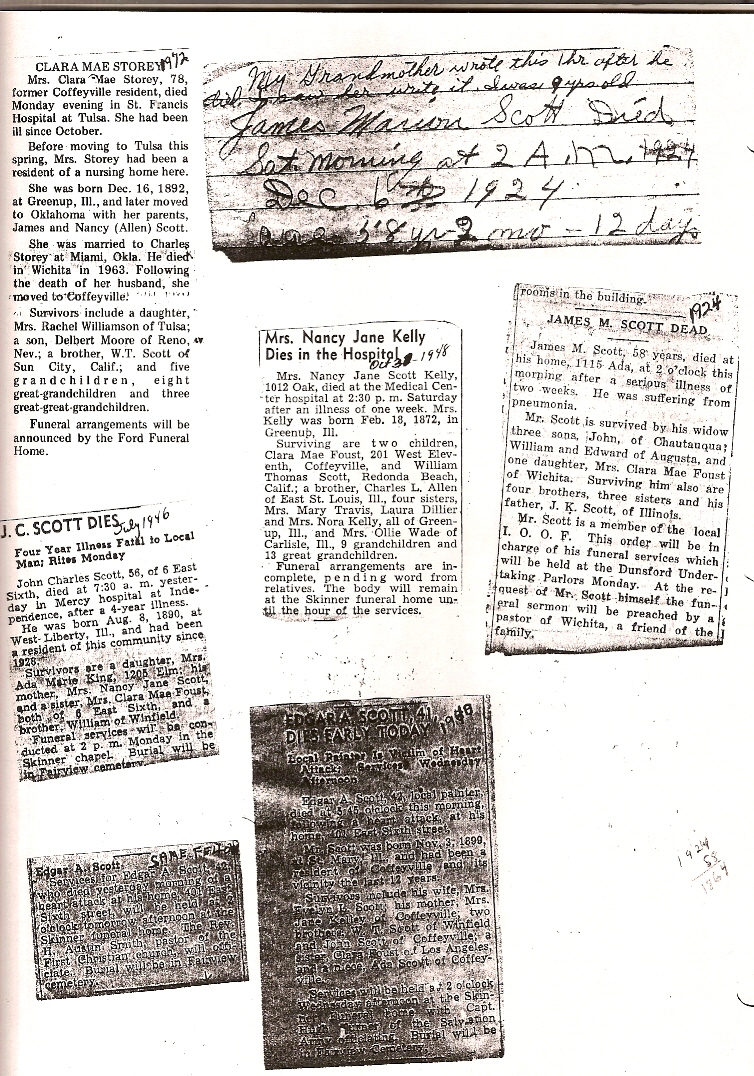 CLARA MAE STOREY 1972
Mrs. Clara Mae Storey, 78,
former Coffeyville resident, died
Monday evening in St. Francis
Hospital at Tulsa. She had been
ill since October.
Before moving to Tulsa this
spring, Mrs. Storey had been a
resident of a nursing home here.
She was born Dec. 16, 1892,
at Greenup, Ill., and later moved
to Oklahoma with her parents,
James and Nancy (Allen) Scott.
She was married to Charles
Storey at Miami, Okla. He died
in Wichita in 1963. Following
the death of her husband, she
moved to Coffeyville.
Survivors include a daughter,
Mrs. Rachel Williamson of Tulsa;
a son, Delbert Moore of Reno,
Nev.; a brother, W.T. Scott of
Sun City, Calif.; and five
grandchildren, eight
great-grandchildren and three
great-great-grandchildren.
Funeral arrangements will be
announced by the Ford Funeral
Home.
My Grandmother wrote this 1hr after he
died. I saw her write it. I was 9 yrs old
James Marion Scott Died
Sat morning at 2 A.M.
Dec 6th 1924
age 58 yr - 2 mo - 12 days
Mrs. Nancy Jane Kelly
Dies in the Hospital Oct 30 - 1948
Mrs. Nancy Jane Scott Kelly,
1012 Oak, died at the Medical Cen-
ter hospital at 2:30 p. m. Saturday
after an illness of one week. Mrs.
Kelly was born Feb. 18, 1872, in
Greenup, Ill.
Surviving are two children,
Clara Mae Foust, 201 West Elev-
enth, Coffeyville, and William
Thomas Scott, Redonda Beach,
Calif.; a brother, Charles L. Allen
of East St. Louis, Ill., four sisters,
Mrs. Mary Travis, Laura Dillier
and Mrs. Nora Kelly, all of Green-
up, Ill., and Mrs. Ollie Wade of
Carlisle, Ill., 9 grandchildren and
13 great grandchildren.
Funeral arrangements are in-
complete, pending word from
relatives. The body will remain
at the Skinner funeral home un-
til the hour of the services.
rooms in the building.
1924
JAMES M. SCOTT DEAD
James M. Scott, 58 years, died at
his home, 1115 Ada, at 2 o'clock this
morning after a serious illness of
two weeks. He was suffering from
pneumonia.
Mr. Scott is survived by his widow
three sons, John, of Chautauqua;
William and Edward of Augusta, and
one daughter, Mrs. Clara Mae Foust
of Wichita. Surviving him also are
four brothers, three sisters and his
father, J. K. Scott, of Illinois.
Mr. Scott is a member of the local
I. O. O. F. This order will be in
charge of his funeral services which
will be held at the Dunsford Under-
taking Parlors Monday. At the re-
quest of Mr. Scott himself the fun-
eral sermon will be preached by a
pastor of Wichita, a friend of the
family.
J. C. SCOTT DIES July 1946
Four Year Illness Fatal to Local
Man; Rites Monday
John Charles Scott, 56, of 6 East
Sixth, died at 7:30 a. m. yester-
day in Mercy hospital at Inde-
pendence, after a 4-year illness.
He was born Aug. 8, 1890, at
West Liberty, Ill., and had been
a resident of this community since
1928.
Survivors are a daughter, Mrs.
Ada Marie King, 1205 Elm; his
mother, Mrs. Nancy Jane Scott,
and a sister, Mrs. Clara Mae Foust,
both of 6 East Sixth, and a
brother, William of Winfield.
Funeral services will be con-
ducted at 2 p. m. Monday in the
Skinner chapel. Burial will be
in Fairview cemetery.
EDGAR A SCOTT, 41,
DIES EARLY TODAY
Local Painter is Victim of Heart
Attack; Services Wednesday
Afternoon
Edgar A. Scott, 42, local painter,
died at 5:45 o'clock this morning,
following a heart attack, at his
home, 401 East Sixth street.
Mr. Scott was born Nov. 3, 1899,
at St. Mary, Ill., and had been a
resident of Coffeyville and its
vicinity the last 12 years.
Survivors include his wife, Mrs.
Evelyn B. Scott; his mother, Mrs.
Jane Kelley of Coffeyville; two
brothers, W. T. Scott of Winfield
and John Scott of Coffeyville; a
sister, Clara Foust of Los Angeles,
and a niece, Ada Scott of Coffey-
ville.
Services will be held at 2 o'clock
Wednesday afternoon at the Skin-
ner Funeral home with Capt.
of the Salvation
Army officiating. Burial will be
in Fairview Cemetery.
Edgar A. Scott SAME FELLOW
Services for Edgar A. Scott,
who died yesterday morning of a
heart attack at his home, 401 East
Sixth street, will be held at 2
o'clock tomorrow afternoon at the
Skinner funeral home. The Rev.
H. Austin Smith, pastor of the
First Christian church, will offi-
ciate. Burial will be in Fairview
cemetery.
1924
58